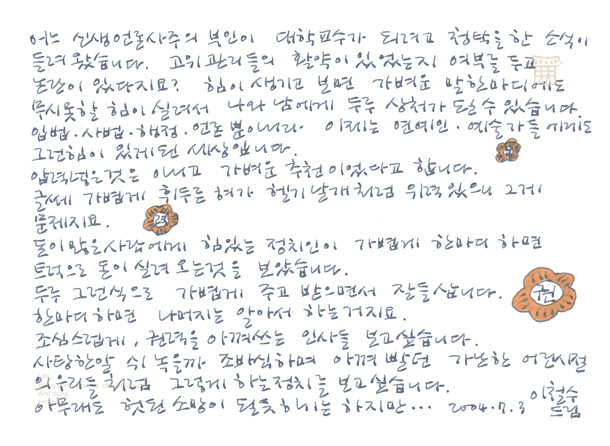 어느 신생언론사주의 부인이 대학교수가 되려고 청탁을 한 소식이
들려 왔습니다. 고위관리들의 활약이 있었는지 여부를 두고
논란이 있다지요? 힘이 생기고 보면 가벼운 말한마디에도
무시못할 힘이 실려서 나와 남에게 두루 상처가 될 수 있습니다.
입법·사법·행정·언론 뿐아니라 이제는 연예인·예술가들에게도
그런힘이 있게된 세상입니다.
압력넣은것은 아니고 가벼운 추천이었다고 합니다.
글쎄 가볍게 휘두른 혀가 헬기날개처럼 위력있으니 그게
문제지요.
돈이많은사람에게 힘있는 정치인이 가볍게 한마디 하면
트럭으로 돈이 실려 오는것을 보았습니다.
두루 그런식으로 가볍게 주고 받으면서 잘들삽니다.
권
한마디하면 나머지는 알아서 하는거지요.
조심스럽게, 권력을 아껴쓰는 인사들 보고싶습니다.
사탕한알 쉬 녹을까 조바심하며 아껴 빨던 가난한 어린시절
의 우리들처럼 그렇게 하는정치를 보고싶습니다.
아무래도 헛된 소망이 될듯하기는 하지만··· 2004.7.3 이철수
드림